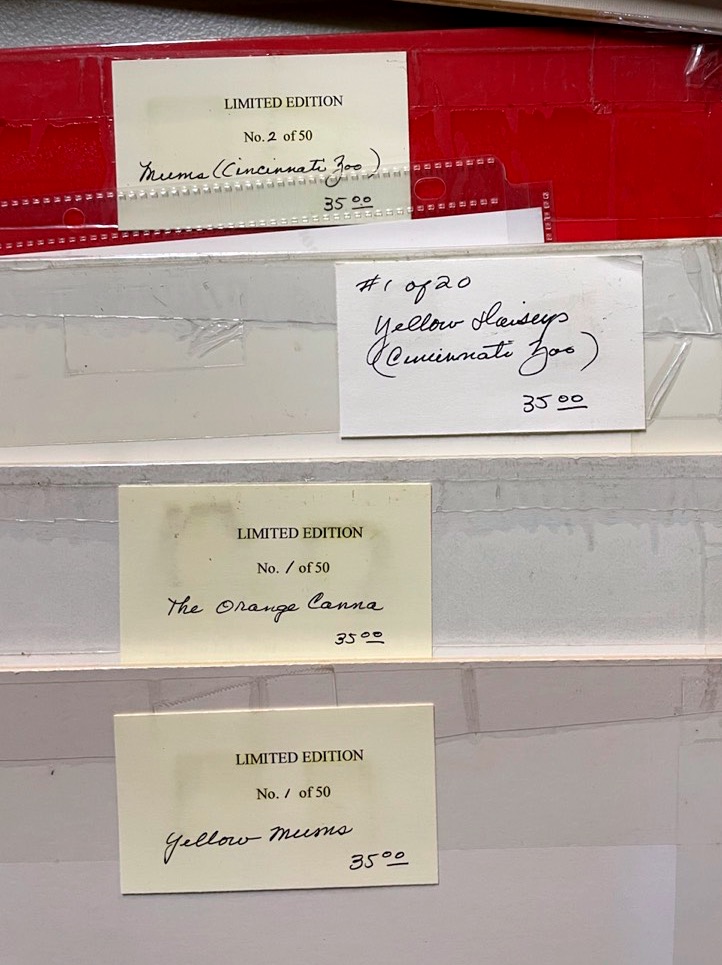 LIMITED EDITION
No. 2 of 50
Mums (Cincinnati Zoo)
35 00
#1 of 20
Yellow Daiseys
(Cincinnati Zoo)
35 00
LIMITED EDITION
No. 1 of 50
The Orange Canna
35 00
LIMITED EDITION
No. 1 of 50
Yellow Mums
35 00